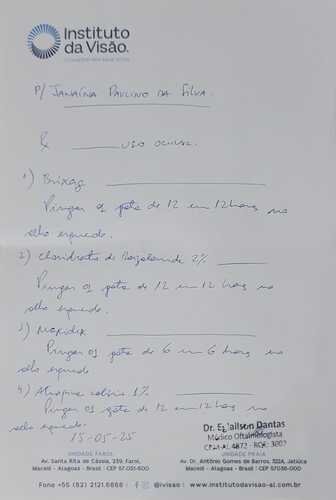 Instituto
da Visão.
P/ JANAÍNA PAULINO DA SILVA.
USO OCULAR.
1) Brixag
Pingar 01 gota de 12 em 12 horas no
olho esquerdo.
2) Cloridrato de Dorzolamida 2%
Pingar 01 gota de 12 em 12 horas no
olho esquerdo.
3) Maxidex
Pingar 01 gota de 6 em 6 horas no
olho esquerdo
4) Atropina colírio 1%
Pingar 01 gota de 12 em 12 horas no
olho esquerdo.
15-05-25
Dantas
Médico Oftalmologista
CRM-AL 4872 - RQE: 3007
UNIDADE FAROL
Av. Santa Rita de Cássia, 239, Farol,
Maceió - Alagoas - Brasil | CEP 57.051-600
UNIDADE PRAIA
Av. Dr. Antônio Gomes de Barros, 322A, Jatiúca
Maceió - Alagoas - Brasil | CEP 57.036-000
Fone +55 (82) 2121.6868 | @ivisao | www.institutodavisao-al.com.br